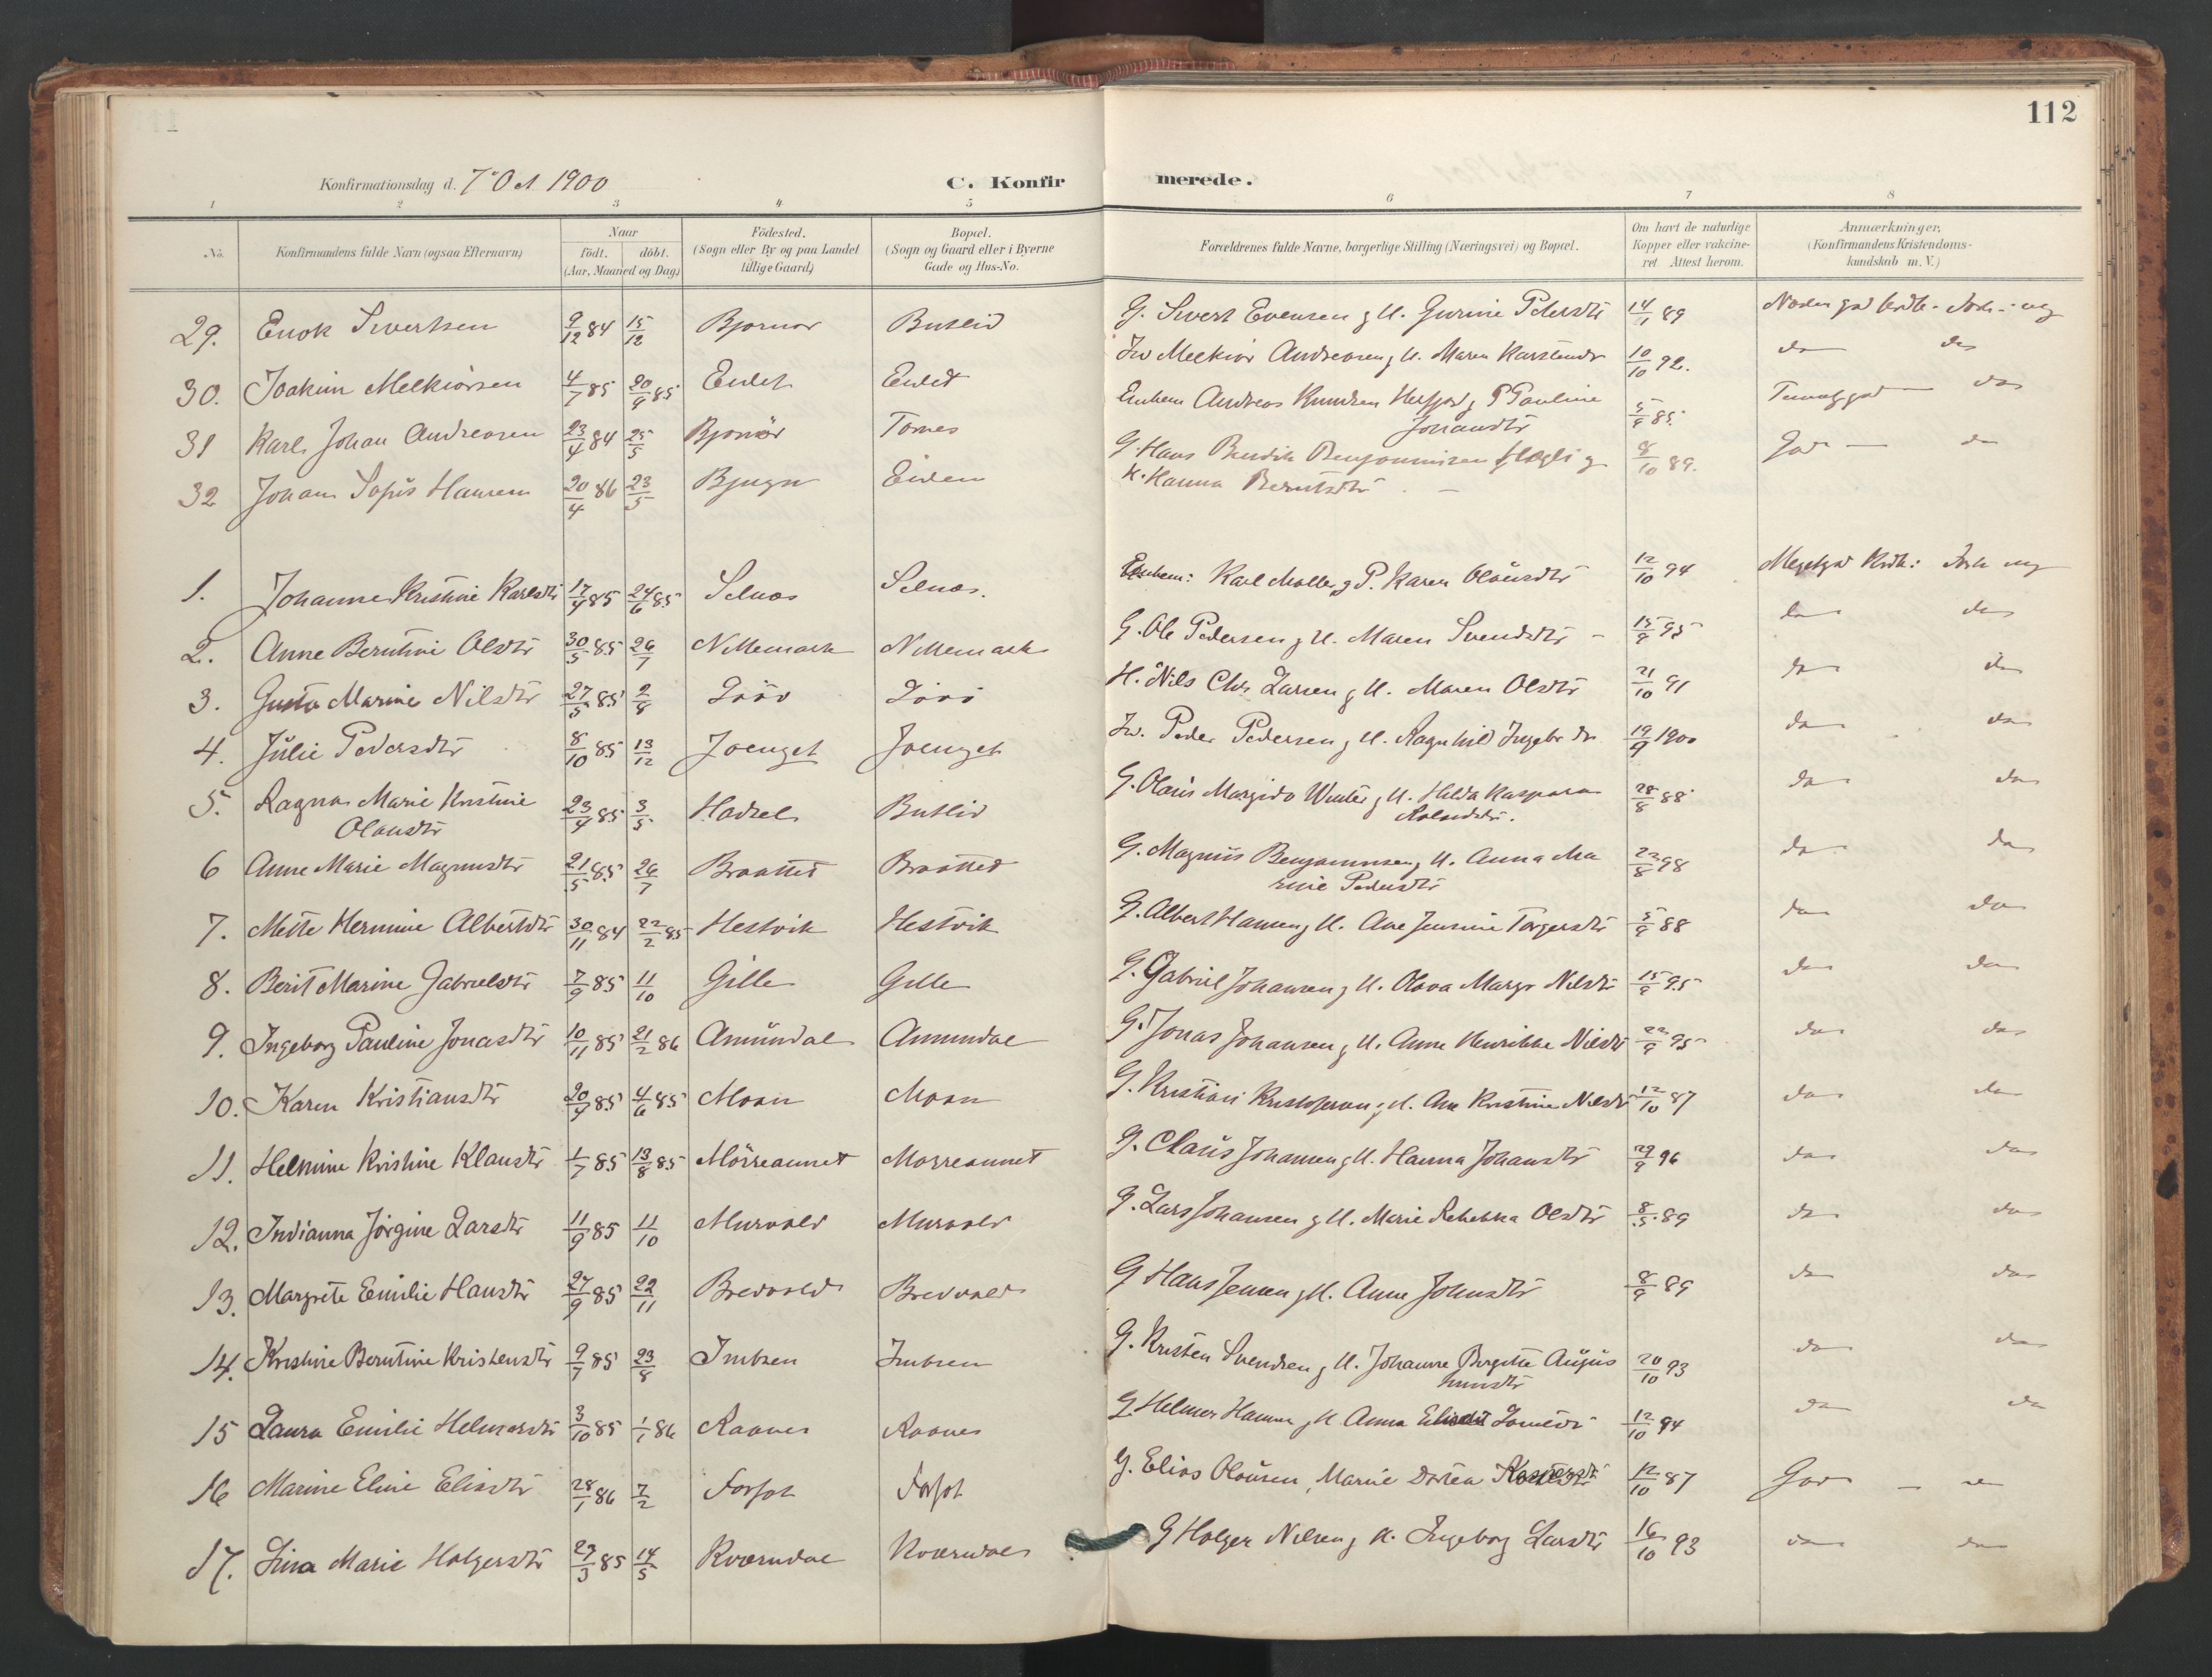 112
Konfirmationsdag d. 7 Oct 1900
C. Konfirmerede.
1 2 3 4 5 6 7 8
No. Konfirmandens fulde Navn (ogsaa Efternavn) Naar födt. döbt. (Aar, Maaned og Dag) Födested. (Sogn eller By og paa Landet tillige Gaard) Bopæl. (Sogn og Gaard eller i Byerne Gade og Hus-No. Forældrenes fulde Navne, borgerlige Stilling (Næringsvei) og Bopæl. Om havt de naturlige Kopper eller vakcineret. Attest herom. Anmærkninger, (Konfirmandens Kristendomskundskab m. V.)
29. Enok Sivertsen 9/12 84 15/12 Bjørnør Butlid G. Sivert Evensen g H. Gurine Petersdtr 14/11 89
30. Joakim Melkiorsen 4/7 85 20/9 85 Eidet Eidet Melkior Andreasen g H. Maren 10/10 92. do do
31 Karl Johan Andreasen 23/4 84 25/5 Bjørnør Tornes Andreas Knudsen P Pauline Johansdtr 5/9 85 do
32 Johan Sofus Hansen 20/4 86 23/5 Bjugn Eiden G Hans Bendik Benjaminsen g K. Hanna Berntsdtr 8/10 89. God — do
1. Johanne Kristine Karlsdtr 17/4 85 24/6 85 Selnæs Selnæs. Karl Møller g P. Karen Olausdtr 12/10 94 Meget god
2. Anne Berntine Olsdtr 30/5 85 26/7 Nettemark Nettemark G. Ole Pedersen g H. Maren Svendsdtr 15/9 95 do do
3. Gusta Marine Nilsdtr 27/5 85 2/8 H. Nils Chr. Larsen g H. Maren Olsdtr 21/10 91 do do
4. Julie Pedersdtr 8/10 85 13/12 Joenget Joenget Peder Pedersen g H. Ragnhild Ingebr dr 19/9 1900 do do
5. Ragna Marie Kristine Olausdtr 23/4 85 3/5 Hadsel Butlid G. Olaus Margido Winter g H. Hilda Kaspara Rolandsdtr. 28/8 88 do do
6 Anne Marie Magnusdtr 21/5 85 26/7 Braattet Braattet G. Magnus Benjaminsen g H. Anna Marie Pedersdtr 22/8 98 do do
7. Mette Hermine Albertsdtr 30/11 84 22/2 85 Hestvik Hestvik G. Albert Hansen g H. Ane Jensine Torgersdtr 5/9 88 do do
8. Berit Marine Gabrielsdtr 7/9 85 11/10 Gille Gille G. Gabriel Johansen g H. Olava Margr Nilsdtr 15/9 95 do do
9. Ingeborg Pauline Jonasdtr 10/11 85 21/2 86 Amundal Amundal G. Jonas Johansen g H. Anne Henrikke Nilsdtr 22/9 95 do do
10. Karen Kristiansdtr 20/4 85 4/6 85 Moan Moan G. Kristian Kristofersen g H. Ane Kristine Nilsdtr 12/10 87 do do
11. Helmine Kristine Klausdtr 1/7 85 13/8 85 Mörreaunet Mörreaunet G. Claus Johansen g H. Hanna Johansdtr 29/9 96 do do
12. Indianna Jörgine Larsdtr 11/9 85 11/10 Murvold Murvold G. Lars Johansen g H. Marie Rebekka Olsdtr 8/5 89 do do
13. Margrete Emilie Hansdtr 27/9 85 22/11 Bredvold Bredvold G Hans Jensen g H. Anne Johnsdtr 8/9 89 do do
14. Kristine Berntine Kristensdtr 9/7 85 23/8 Imbsen Imbsen G. Kristen Svendsen g H. Johanne Birgitte Augustinusdtr 20/10 93 do do
15 Laura Emilie Helmersdtr 3/10 85 1/1 86 Raanes Raanes G. Helmer Hansen g H Anna 12/10 94 do do
16 Marine Eline Eliasdtr 28/1 86 7/2 Forfot Forfot G. Elias Olausen, Marie Dorea Kaspersdtr 12/10 87 God
17. Lina Marie Holgersdtr 29/3 85 14/5 Kværndal Kværndal G Holger Nilsen g H. Ingeborg Larsdtr 16/10 93 do do